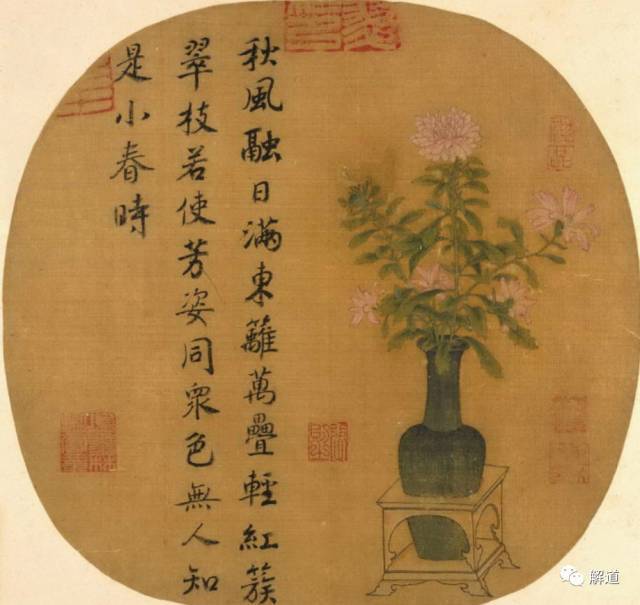 秋風融日滿東籬萬疊輕紅簇
翠枝若使芳姿同衆色無人知
是小春時
解道